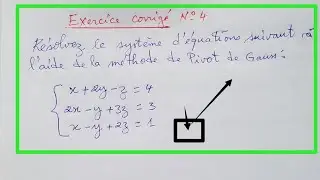 Exercice corrigé N° 4
Résolvez le système d'équations suivant à
l'aide de la méthode de Pivot de Gauss :
x + 2y - z = 4
2x - y + 3z = 3
x - y + 2z = 1